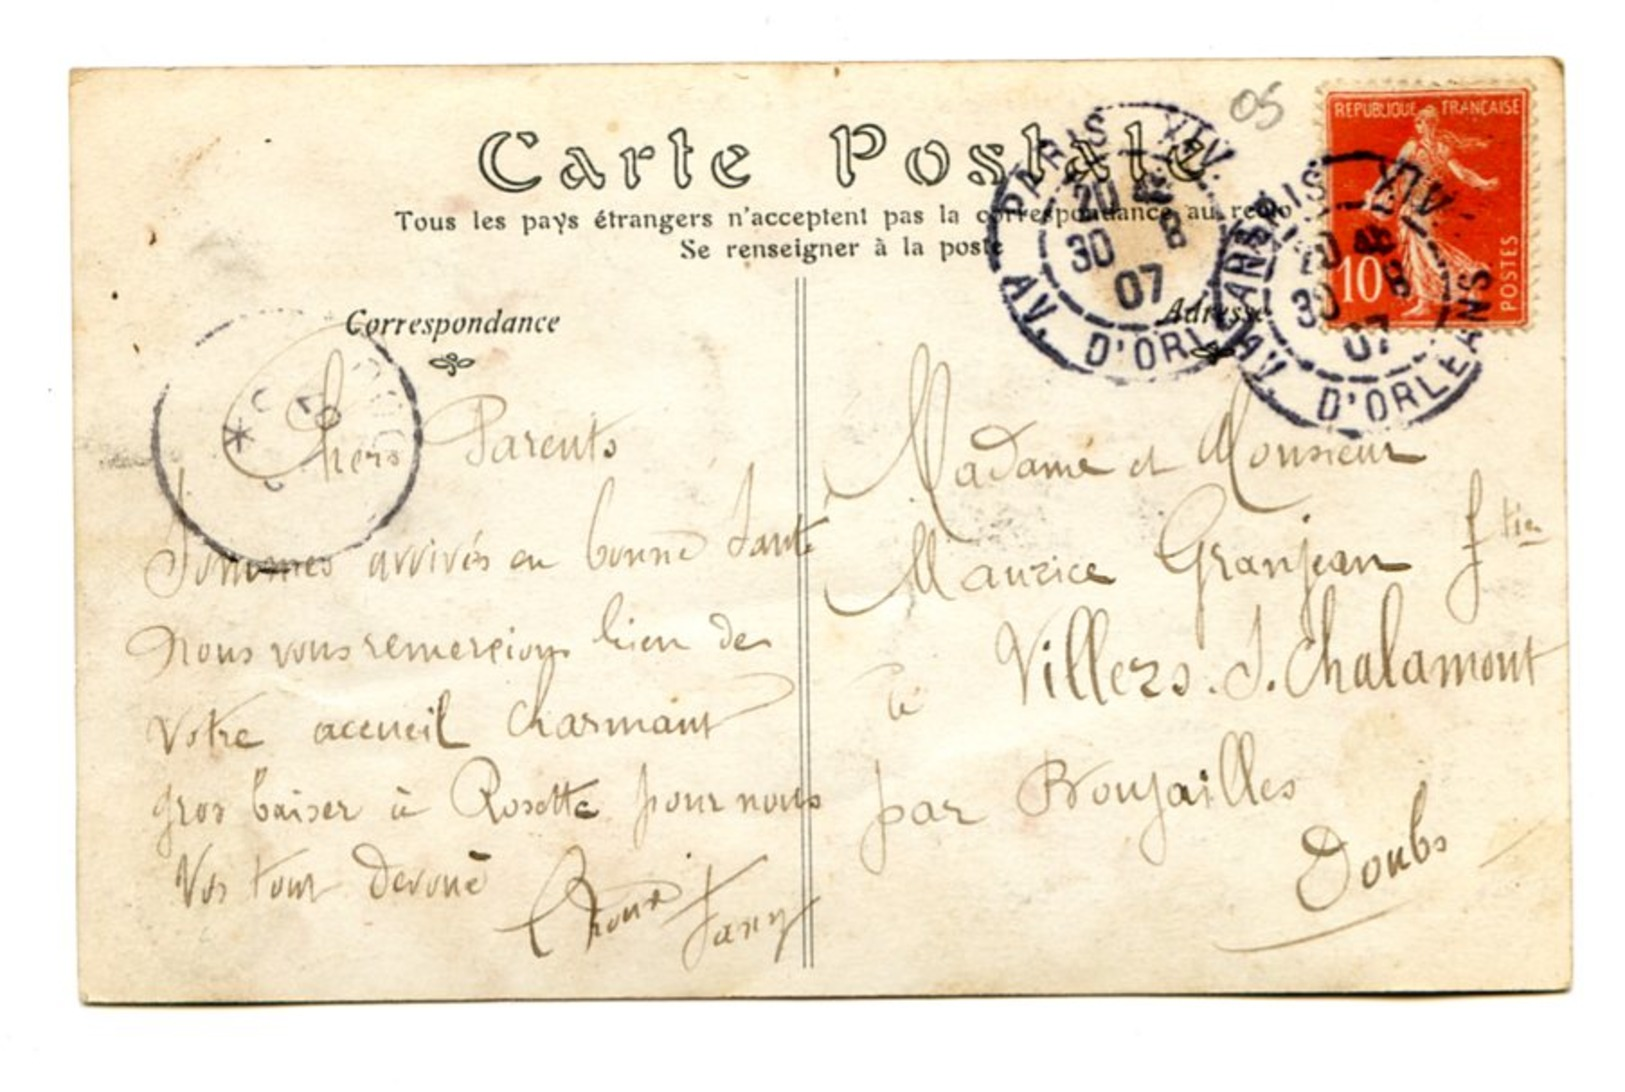 05
Carte Postale
Tous les pays étrangers n'acceptent pas la correspondance au recto
Se renseigner à la poste
REPUBLIQUE FRANÇAISE
10
POSTES
PARIS XIV.
20
30 8
07
AV. D'ORLEANS
PARIS XIV
30 8
07
AV. D'ORLEANS
Correspondance
Chers Parents
Sommes arrivés en bonne Santé
nous vous remercions bien de
votre accueil charmant
gros baiser à Rosette pour nous
Vos tout Devoué
Fany
Adresse
Madame et Monsieur
Maurice Granjean
à Villers. S. Chalamont
par Boujailles
Doubs